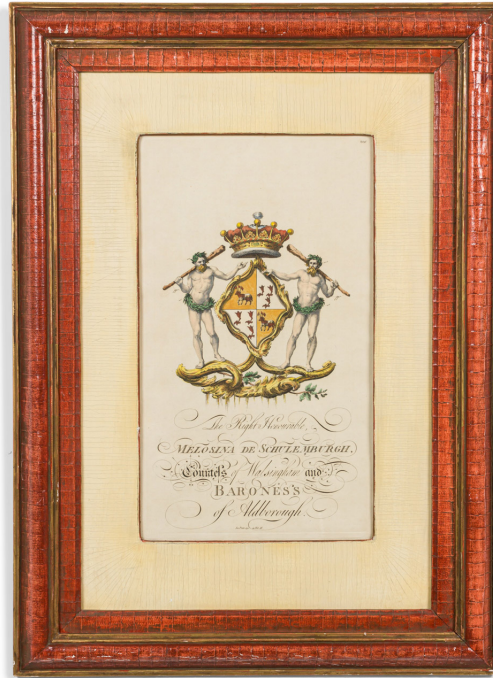 The Right Honourable
MELOSINA DE SCHULEMBURGH,
Countess of Walsingham and
BARONESS
of Aldborough.